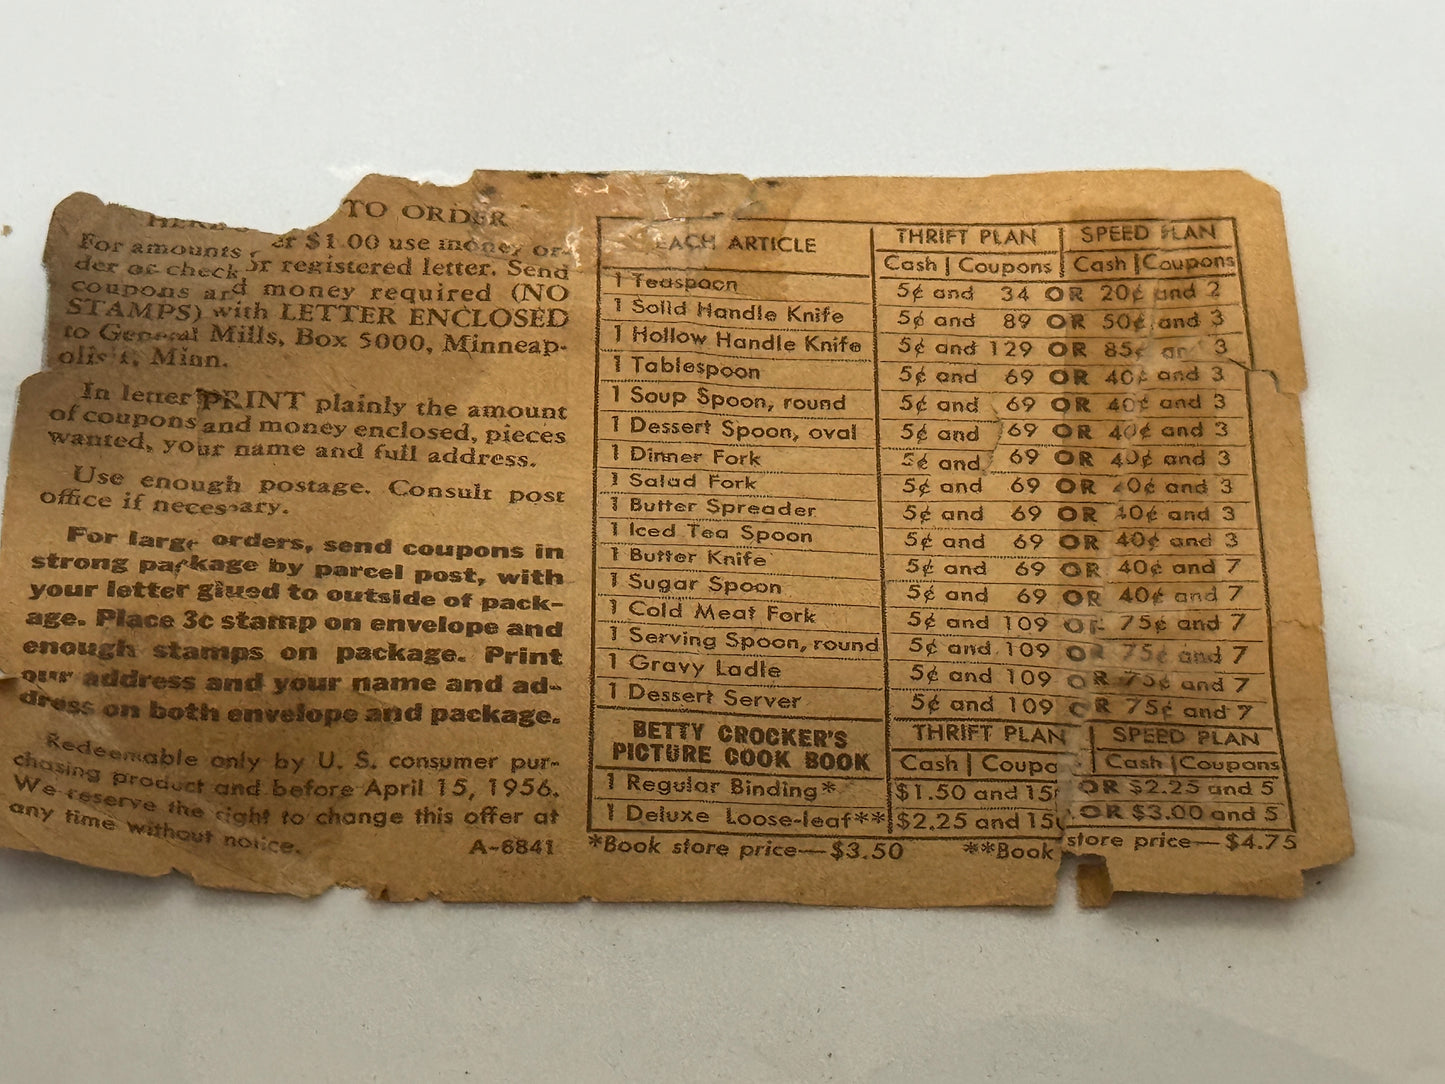 TO ORDER
For amounts $1.00 use money or-
der or check or registered letter. Send
coupons and money required (NO
STAMPS) with LETTER ENCLOSED
to General Mills, Box 5000, Minneap-
Minn.
In letter PRINT plainly the amount
of coupons and money enclosed, pieces
wanted, your name and full address.
Use enough postage. Consult post
office if necessary.
For large orders, send coupons in
strong package by parcel post, with
your letter glued to outside of pack-
age. Place 3c stamp on envelope and
enough stamps on package. Print
our address and your name and ad-
dress on both envelope and package.
Redeemable only by U. S. consumer pur-
chasing product and before April 15, 1956.
We reserve the right to change this offer at
any time without notice.
A-6841
EACH ARTICLE THRIFT PLAN SPEED PLAN
Cash | Coupons Cash | Coupons
1 Teaspoon 5¢ and 34 OR 20¢ and 2
1 Solid Handle Knife 5¢ and 89 OR 50¢ and 3
1 Hollow Handle Knife 5¢ and 129 OR 85¢ and 3
1 Tablespoon 5¢ and 69 OR 40¢ and 3
1 Soup Spoon, round 5¢ and 69 OR 40¢ and 3
1 Dessert Spoon, oval 5¢ and 69 OR 40¢ and 3
1 Dinner Fork 5¢ and 69 OR 40¢ and 3
1 Salad Fork 5¢ and 69 OR 40¢ and 3
1 Butter Spreader 5¢ and 69 OR 40¢ and 3
1 Iced Tea Spoon 5¢ and 69 OR 40¢ and 3
1 Butter Knife 5¢ and 69 OR 40¢ and 7
1 Sugar Spoon 5¢ and 69 OR 40¢ and 7
1 Cold Meat Fork 5¢ and 109 OR 75¢ and 7
1 Serving Spoon, round 5¢ and 109 OR 75¢ and 7
1 Gravy Ladle 5¢ and 109 OR 75¢ and 7
1 Dessert Server 5¢ and 109 OR 75¢ and 7
BETTY CROCKER'S THRIFT PLAN SPEED PLAN
PICTURE COOK BOOK Cash | Coupo Cash | Coupons
1 Regular Binding* $1.50 and 15 OR $2.25 and 5
1 Deluxe Loose-leaf** $2.25 and 15 OR $3.00 and 5
*Book store price—$3.50 **Book store price—$4.75